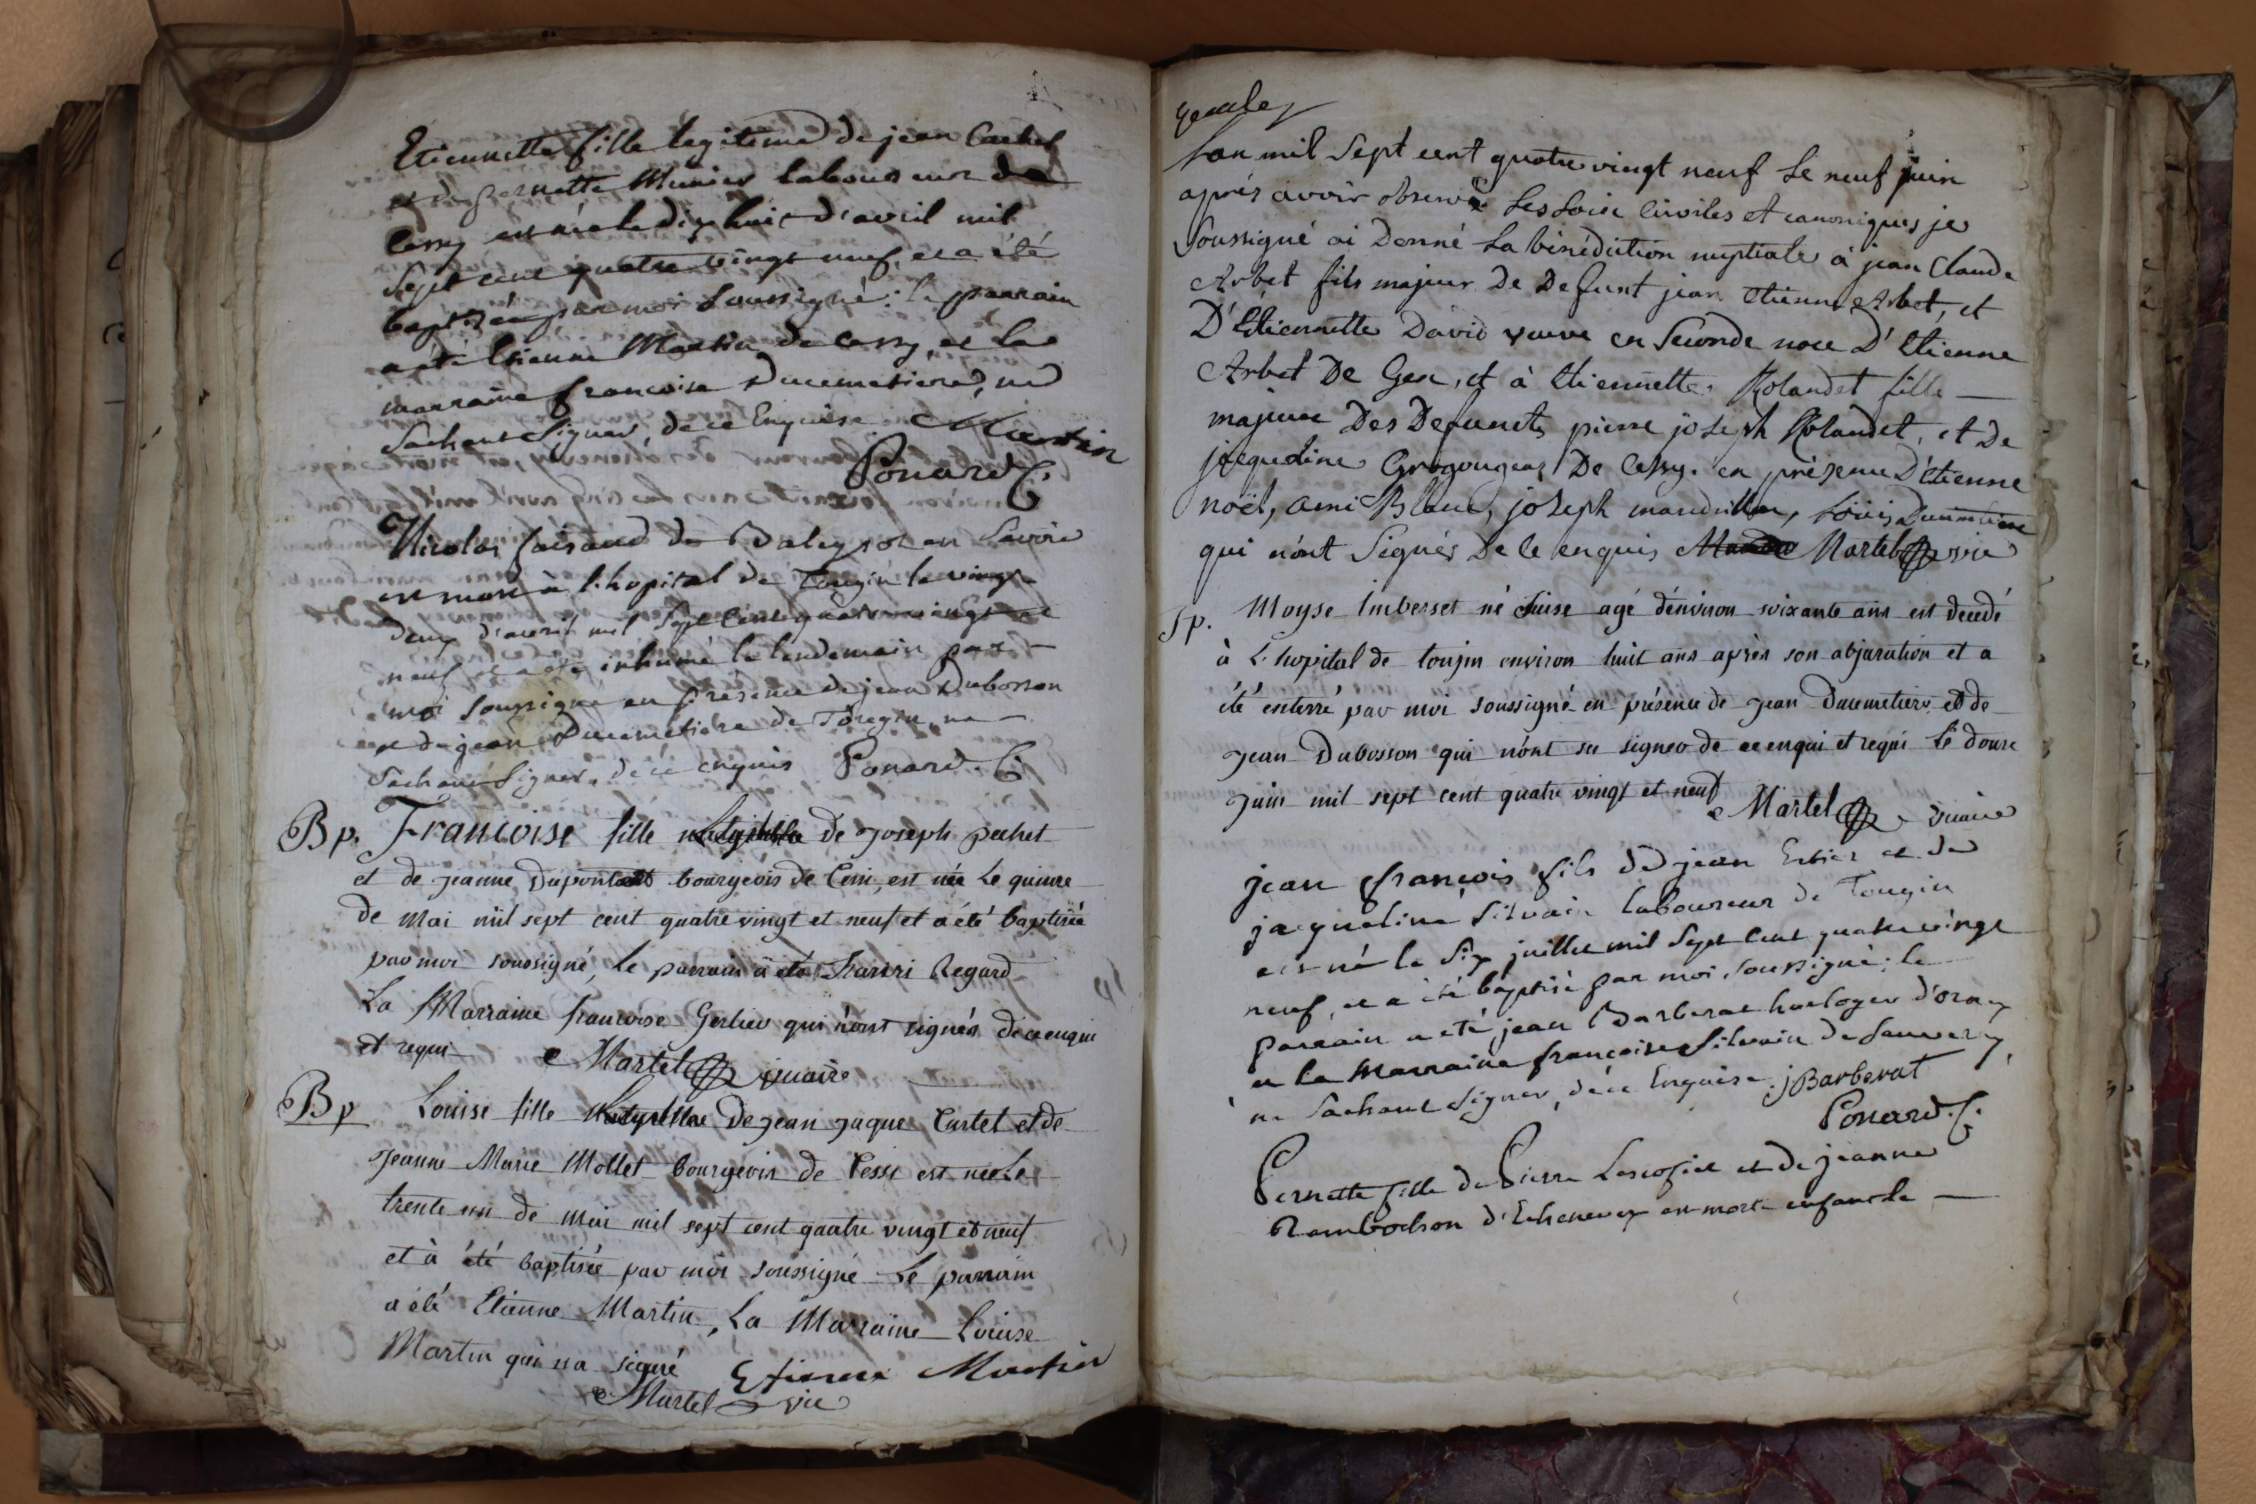 Etiennette fille legitime de jean Cachet
et de pernette Munier laboureur de
Cessy est née le dix huit d'avril mil
Sept cent quatre vingt neuf, et a été
baptisée par moi Soussigné: le parrain
a été Etienne Martin de Cessy, et la
marraine françoise Ducimetiere, ne
Sachant Signer, de ce Enquise. Martin
Ponard C.
Nicolas de en Savoie
est mort à l'hopital de Tougin le vingt
deux d'avril mil Sept Cent quatre vingt
neuf et a été inhumé le lendemain par
moi Soussigné en présence de jean Dubosson
et de jean Ducimetiere de Tougin ne
Sachant Signer, de ce enquis Ponard. C.
Bp. Francoise fille de Joseph pechet
et de jeanne Dupont bourgeois de Cessi, est née Le quinze
de Mai mil sept cent quatre vingt et neuf et a été baptisée
par moi soussigné, Le parrain a été Regard
La Marraine francoise Gerlier qui n'ont signés de ce enqui
et requi Martel vicaire
Bp Louise fille De jean jaque Curtet et de
Jeanne Marie Mollet bourgeois de Cessi est née Le
trente un de mai mil sept cent quatre vingt et neuf
et à été baptisée par moi soussigné Le parrain
a été Etienne Martin, La Marraine Louise
Martin qui n'a signé Etienne Martin
Martel vic
L'an mil Sept cent quatre vingt neuf Le neuf juin
après avoir observé Les Loix Civiles et canoniques je
Soussigné ai Donné La bénédiction nuptiale à jean Claude
Arbet fils majeur De Defunt jean Etienne Arbet, et
D'Etiennette David veuve en Seconde noce D'Etienne
Arbet De Gex, et à Etiennette Rolandet fille
majeure Des Defuncts pierre joseph Rolandet, et De
jaqueline De Cessy. en présence D'Etienne
noël, ami Blanc, joseph mandrillon, Loüis Ducimetiere
qui n'ont Signés De Ce enquis Martel vic
Sp. Moyse Imberset né Suise agé d'environ soixante ans est decedé
à L'hopital de tougin environ huit ans après son abjuration et a
été enterré par moi soussigné en présence de jean Ducimetiere et de
jean Dubosson qui n'ont su signer de ce enqui et requi Le douze
juin mil sept cent quatre vingt et neuf
Martel vicaire
jean françois fils de jean et de
jaqueline Silvain laboureur de Tougin
est né le Six juillet mil Sept Cent quatre vingt
neuf, et a été baptisé par moi Soussigné; le
parrain a été jean Barberat horloger d'ornex
et la Marraine françoise Silvain de Sauverny,
ne Sachant Signer, de ce Enquise. jBarberat
Ponard. C.
Pernette fille de Pierre Lescofier et de jeanne
Rambosson d'Echenevex est morte enfant le